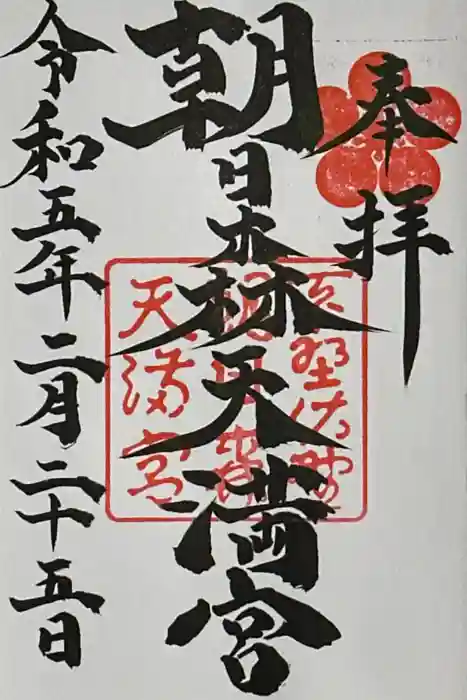 奉拝
朝日森天満宮
令和五年二月二十五日
天満宮